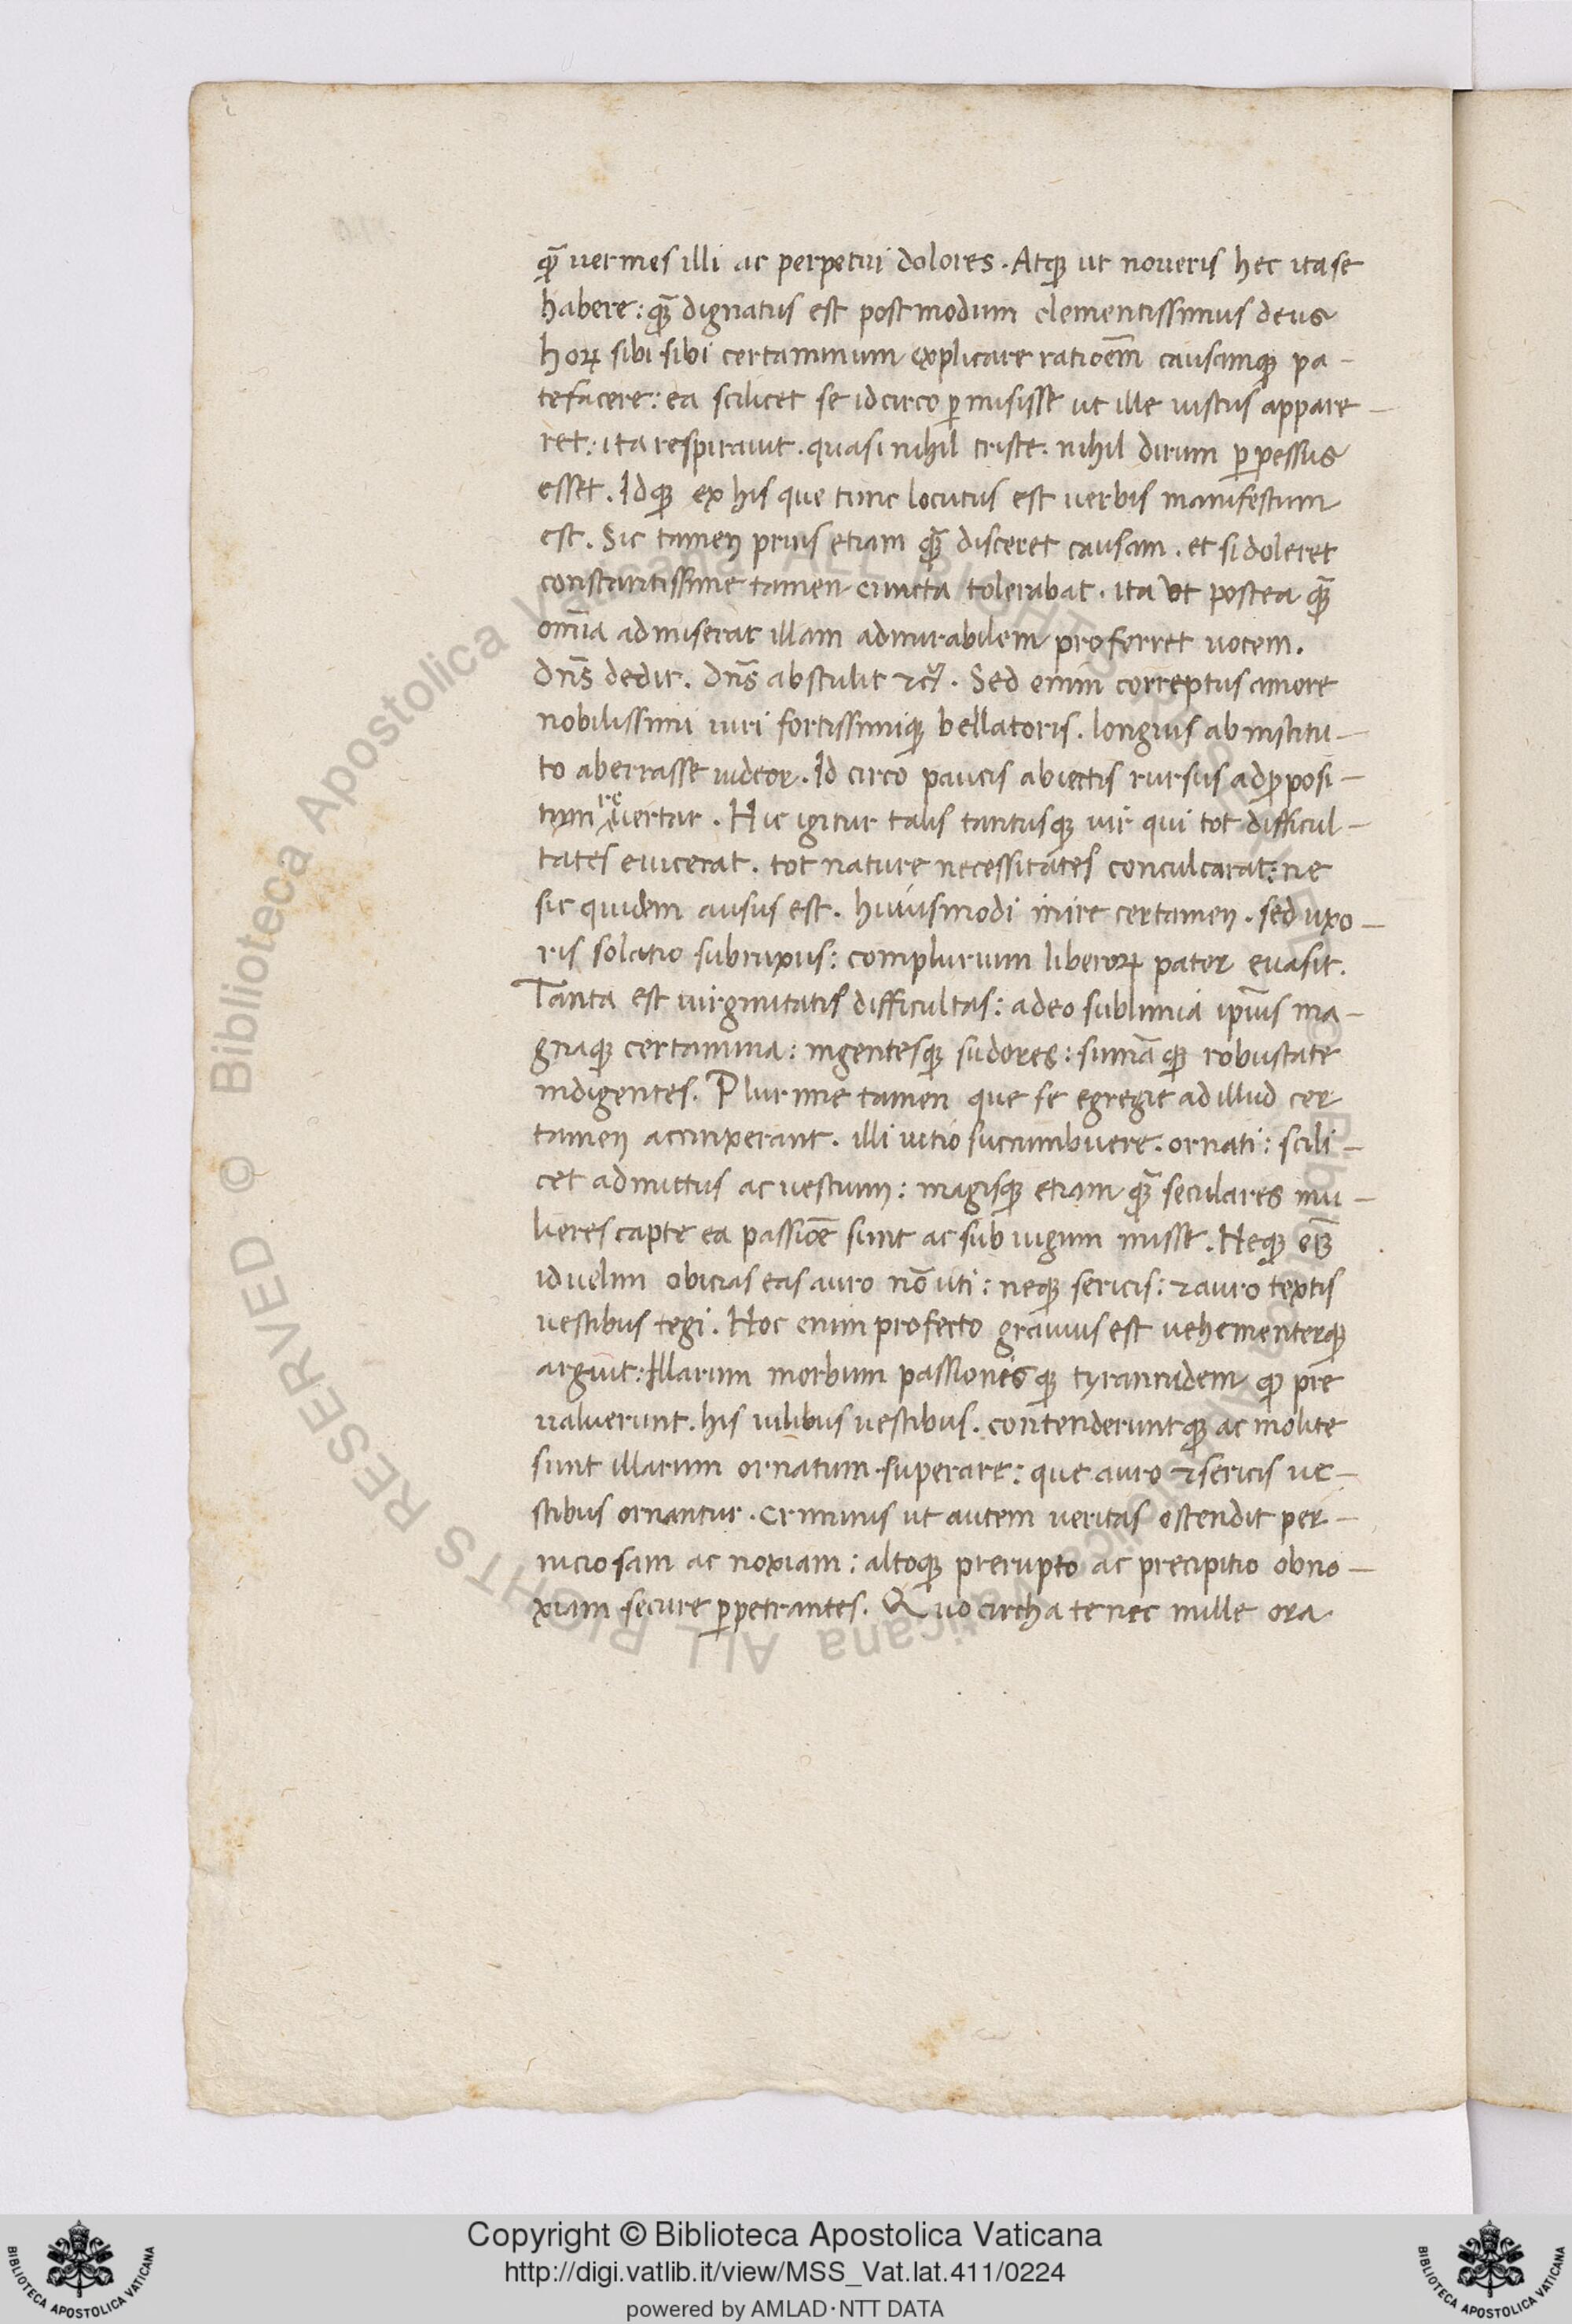 qꝫ̄ uermes illi ac perpetui dolores. Atqꝫ ut noueris hec ita se
habere: qꝫ̄ dignatus est post modum clementissimus deus
horꝝ sibi sibi certaminum explicare ratioēm causamqꝫ pa-
tefacere: ea scilicet se idcirco ꝑmisisse ut ille iustus appare-
ret: ita respirauit. quasi nihil triste. nihil dirum ꝑpessus
esset. Idqꝫ ex his que tunc locutus est uerbis manifestum
est. Sic tamen prius etiam qꝫ̄ disceret causam. et si doleret
constantissime tamen cuncta tolerabat. ita ut postea qꝫ̄
om̄ia admiserat illam admirabilem proferret uocem.
Dn̄s dedit. Dn̄s abstulit ⁊c̃. Sed enim correptus amore
nobilissimi uiri fortissimiqꝫ bellatoris. longius ab institu-
to aberrasse uideor. Id circo paucis abiectis rursus ad ꝓposi-
tum reuertar. Hic igitur talis tantusqꝫ uir qui tot difficul-
tates euicerat. tot nature necessitates conculcarat: ne
sic quidem ausus est. huiusmodi inire certamen. sed uxo-
ris solatio subnixus: complurium liberorꝝ pater euasit.
Tanta est uirginitatis difficultas: adeo sublimia ip̄ius ma-
gnaqꝫ certamina: ingentesqꝫ sudores: sumāqꝫ robustate
indigentes. Plurime tamen que se egregie ad illud cer
tamen accinxerant. illi uitio sucumbuere. ornati: scili-
cet admittus ac uestium: magisqꝫ etiam qꝫ̄ seculares mu-
lieres capte ea passioē sunt ac sub iugum misse. Neqꝫ em̄
id uelim obicias eas auro nō uti: neqꝫ sericis: ⁊ auro textis
uestibus tegi. Hoc enim profecto grauius est uehementerqꝫ
arguit: Illarum morbum passionisqꝫ tyrannidem qꝫ pre
ualuerunt. his uilibus uestibus. contenderuntqꝫ ac molite
sunt illarum ornatum superare: que auro ⁊ sericis ue-
stibus ornantur. Criminis ut autem ueritas ostendit per-
niciosam ac noxiam: altoqꝫ prerupto ac precipitio obno-
xiam secure ꝑpetrantes. Quocircha te nec mille ora
Copyright © Biblioteca Apostolica Vaticana
http://digi.vatlib.it/view/MSS_Vat.lat.411/0224
powered by AMLAD·NTT DATA